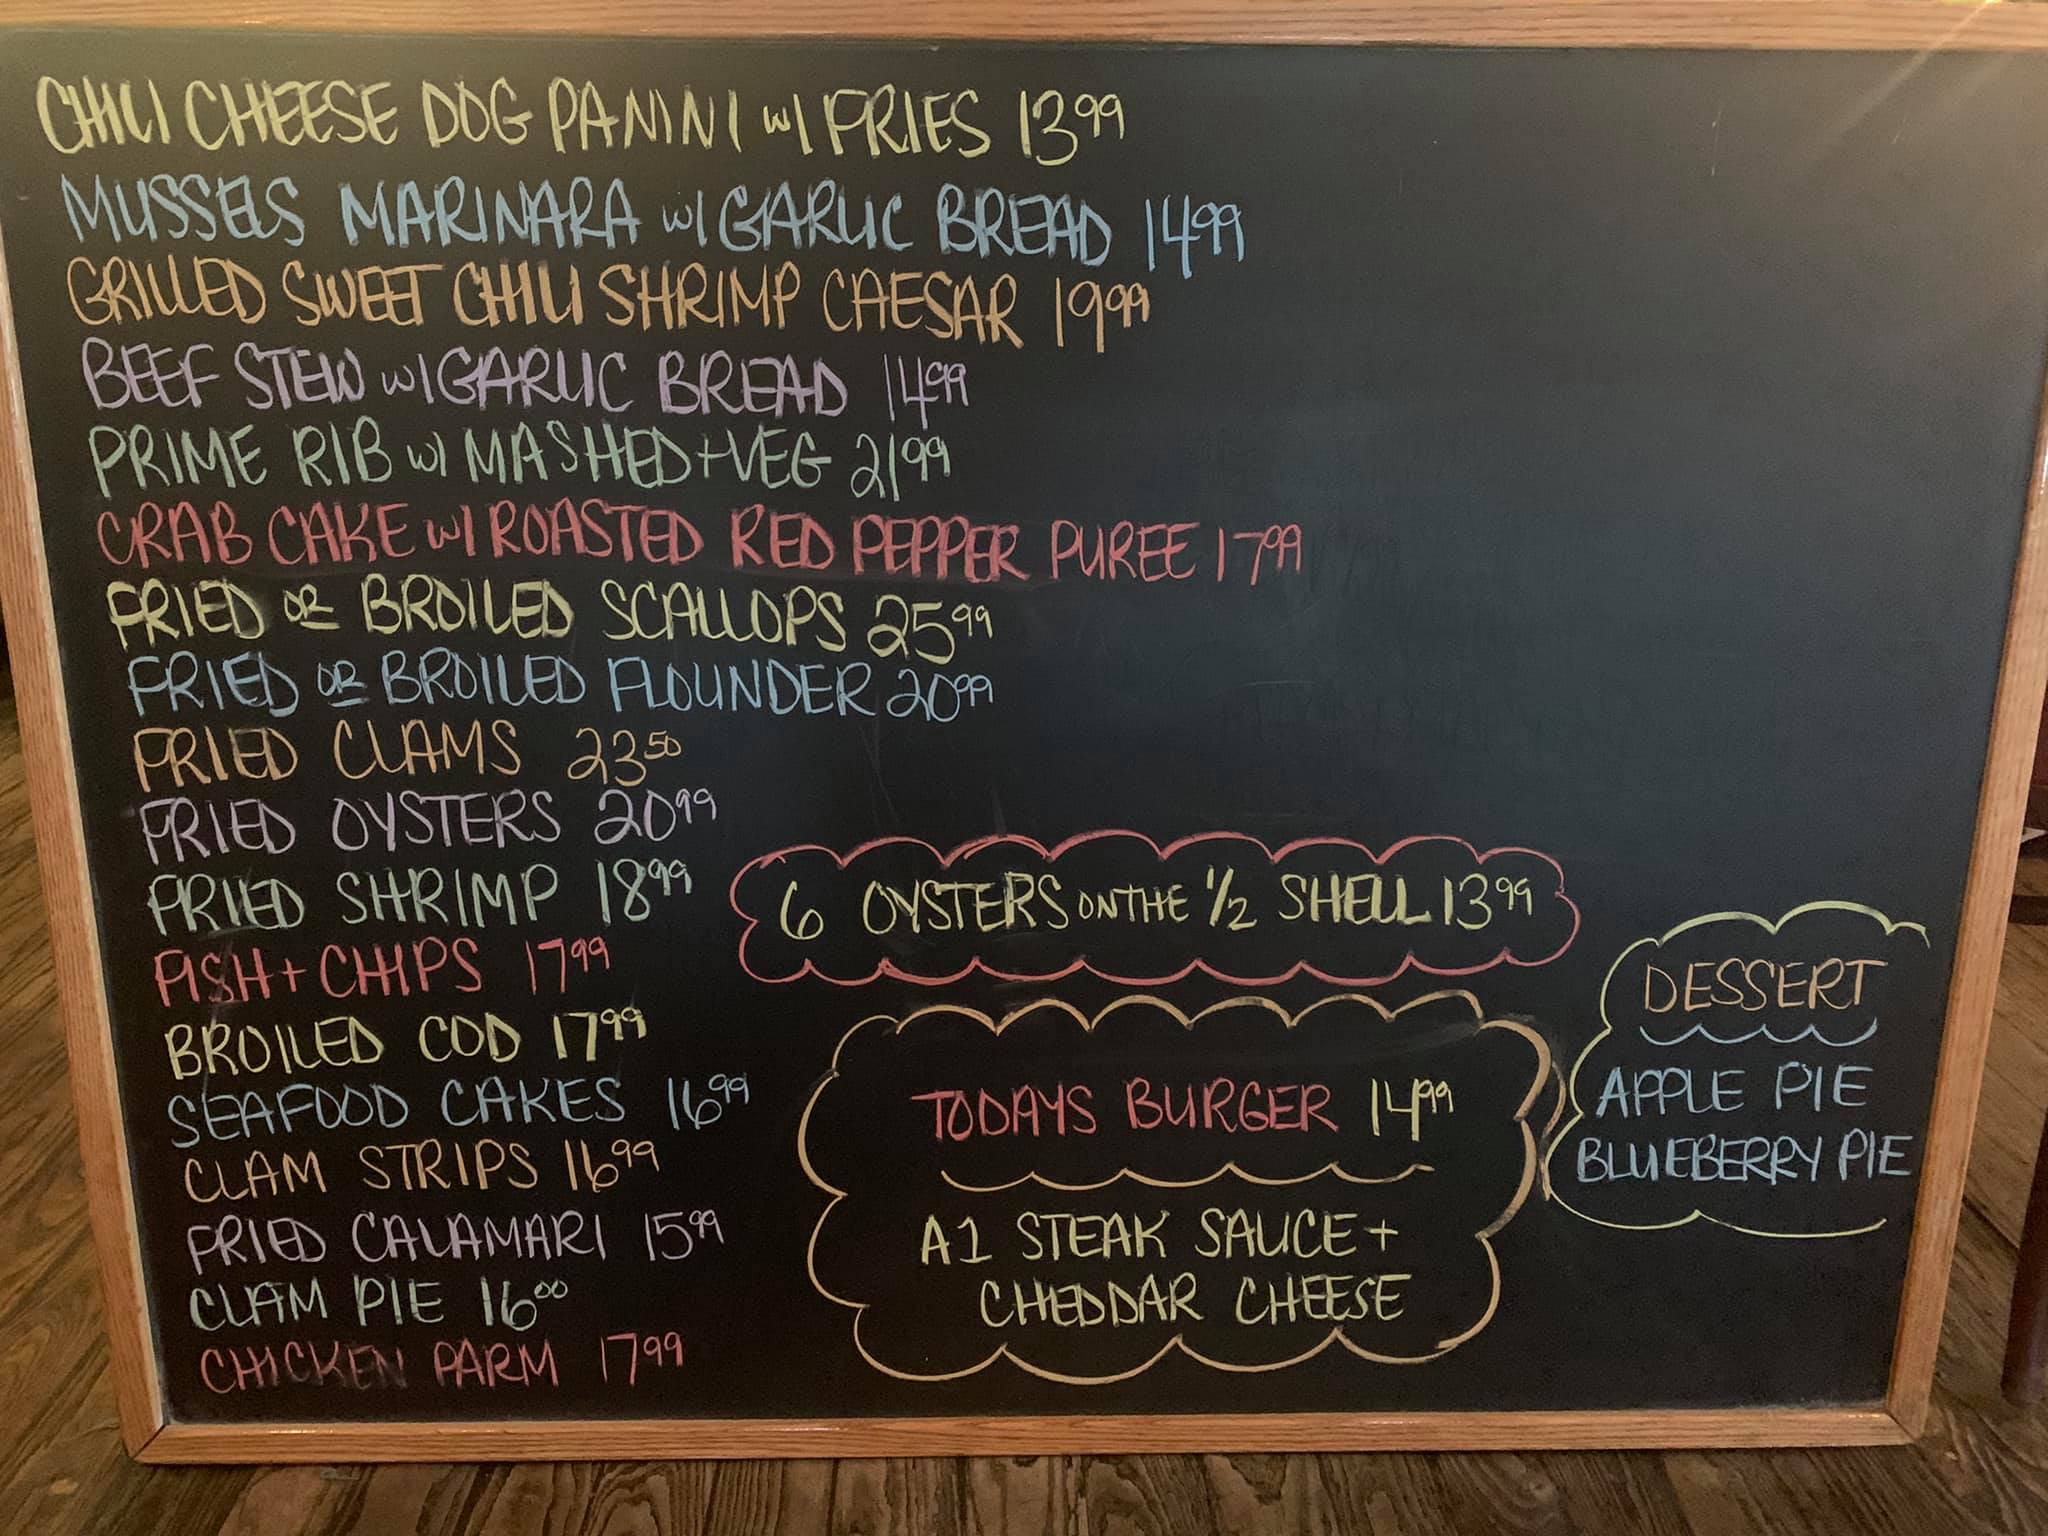 CHILI CHEESE DOG PANINI w/ FRIES 13.99
MUSSELS MARINARA w/ GARLIC BREAD 14.99
GRILLED SWEET CHILI SHRIMP CAESAR 19.99
BEEF STEW w/ GARLIC BREAD 14.99
PRIME RIB w/ MASHED + VEG 21.99
CRAB CAKE w/ ROASTED RED PEPPER PUREE 17.99
FRIED OR BROILED SCALLOPS 25.99
FRIED OR BROILED FLOUNDER 20.99
FRIED CLAMS 23.50
FRIED OYSTERS 20.99
FRIED SHRIMP 18.99
FISH + CHIPS 17.99
BROILED COD 17.99
SEAFOOD CAKES 16.99
CLAM STRIPS 16.99
FRIED CALAMARI 15.99
CLAM PIE 16.00
CHICKEN PARM 17.99
6 OYSTERS ON THE 1/2 SHELL 13.99
TODAYS BURGER 14.99
A1 STEAK SAUCE +
CHEDDAR CHEESE
DESSERT
APPLE PIE
BLUEBERRY PIE